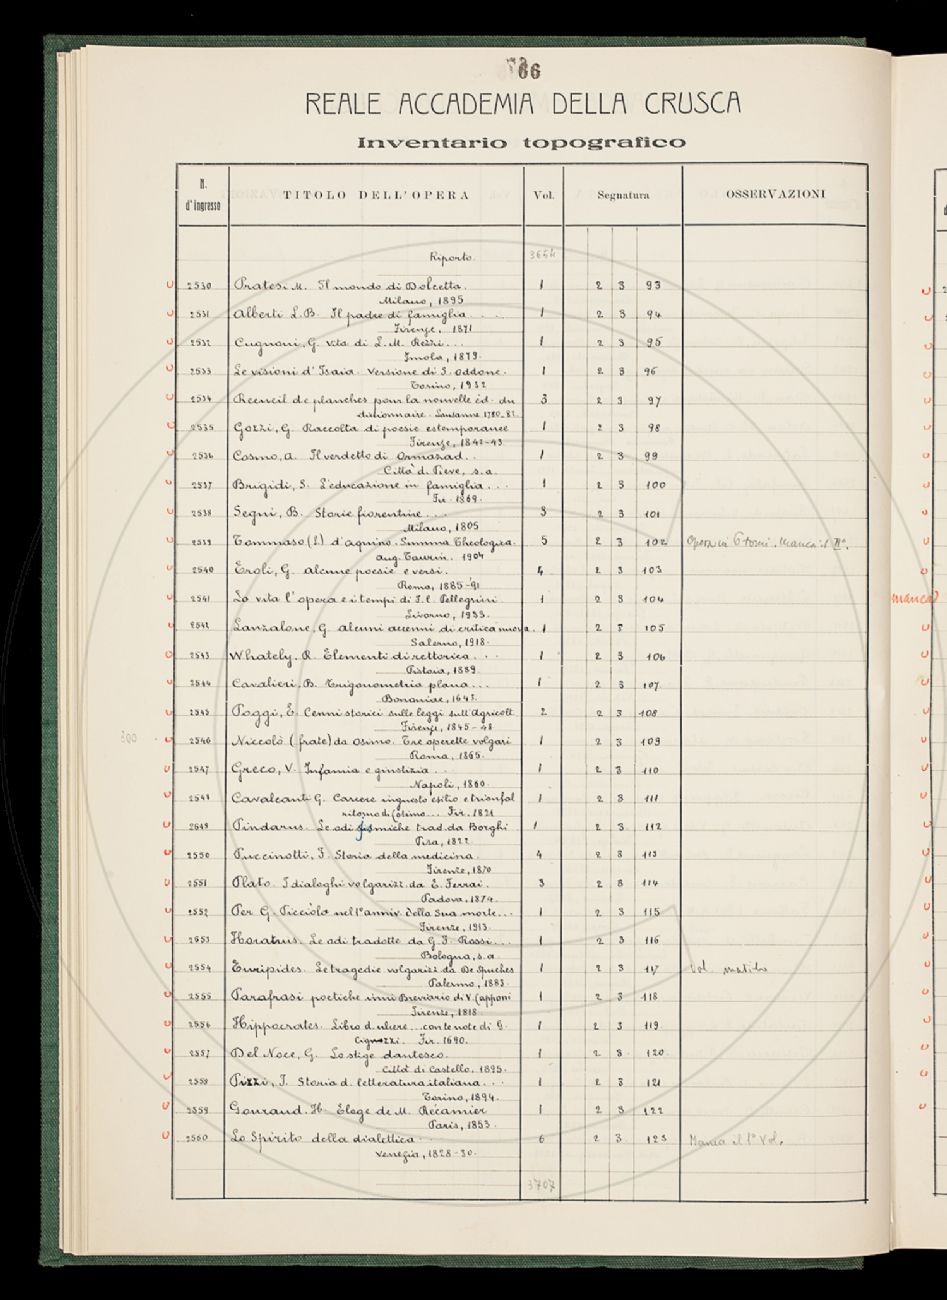 66
REALE ACCADEMIA DELLA CRUSCA
Inventario topografico
N. d'Ingresso TITOLO DELL'OPERA Vol. Segnatura OSSERVAZIONI
Riporto. 3654
2530 Pratesi M. Il mondo di Dolcetta. 1 2 3 93
Milano, 1895
2531 Alberti L.B. Il padre di famiglia . . . 1 2 3 94
Firenze, 1871
2532 Cugnoni, G. Vita di L.M. Rezzi . . . 1 2 3 95
Imola, 1879.
2533 Le visioni d'Isaia. Versione di S. Oddone. 1 2 3 96
Torino, 1932
2534 Recueil de planches pour la nouvelle éd. du 3 2 3 97
dictionnaire. Lausanne 1780-82.
2535 Gozzi, G. Raccolta di poesie estemporanee 1 2 3 98
Firenze, 1842-43.
2536 Cosmo, A. Il verdetto di Ormazad. . 1 2 3 99
Città d. Pieve, s.a.
2537 Brigidi, S. L'educazione in famiglia . . . 1 2 3 100
Fir. 1869.
2538 Segni, B. Storie fiorentine . . . 3 2 3 101
Milano, 1805
2539 Tommaso (S.) d'Aquino. Summa Theologica. 5 2 3 102 Opera in 6 tomi. Manca il IIº.
Aug. Taurin. 1904
2540 Eroli, G. Alcune poesie e versi. 4 2 3 103
Roma, 1885-91
2541 La vita l'opera e i tempi di F.l. Pellegrini 1 2 3 104
Livorno, 1933.
2542 Lanzalone, G. Alcuni accenni di critica nuova. 1 2 3 105
Salerno, 1918.
2543 Whately. R. Elementi di rettorica . . . 1 2 3 106
Pistoia, 1889.
2544 Cavalieri, B. Trigonometria plana . . . 1 2 3 107
Bononiae, 1643.
2545 Poggi, E. Cenni storici sulle leggi sull'Agricolt. 2 2 3 108
Firenze, 1845-48
300 2546 Niccolò (frate) da Osimo. Tre operette volgari 1 2 3 109
Roma, 1865.
2547 Greco, V. Infamia e giustizia . . 1 2 3 110
Napoli, 1860.
Cavalcanti G. 1 2 3 111
ritorno di Cosimo... Fir. 1821
2549 Pindarus. Le odi istmiche trad. da Borghi 1 2 3 112
Pisa, 1822.
2550 Puccinotti, F. Storia della medicina. 4 2 3 113
Firenze, 1870
2551 Plato. I dialoghi volgarizz. da E. Ferrai. 3 2 3 114
Padova, 1874.
2552 Per G. Picciòla nel 1º anniv. della sua morte . . . 1 2 3 115
Firenze, 1913.
2553 Horatius. Le odi tradotte da G.F. Rossi . . . 1 2 3 116
Bologna, s.a.
2554 Euripides. Le tragedie volgarizz. da De Spuches 1 2 3 117 Vol. mutilo
Palermo, 1883.
2555 Parafrasi poetiche Breviario di V. Capponi 1 2 3 118
Firenze, 1818.
2556 Hippocrates. Libro d. ulcere . . . con le note di G. 1 2 3 119
Cignozzi. Fir. 1690.
2557 Del Noce, G. Lo stige dantesco. 1 2 3 120
Città di Castello, 1895.
2558 Pizzi, I. Storia d. letteratura italiana . . . 1 2 3 121
Torino, 1894.
2559 Gouraud. H. Éloge de M. Récamier 1 2 3 122
Paris, 1853.
2560 Lo Spirito della dialettica . . 6 2 3 123 Manca il 1º Vol.
Venezia, 1828-30.
3707
manca